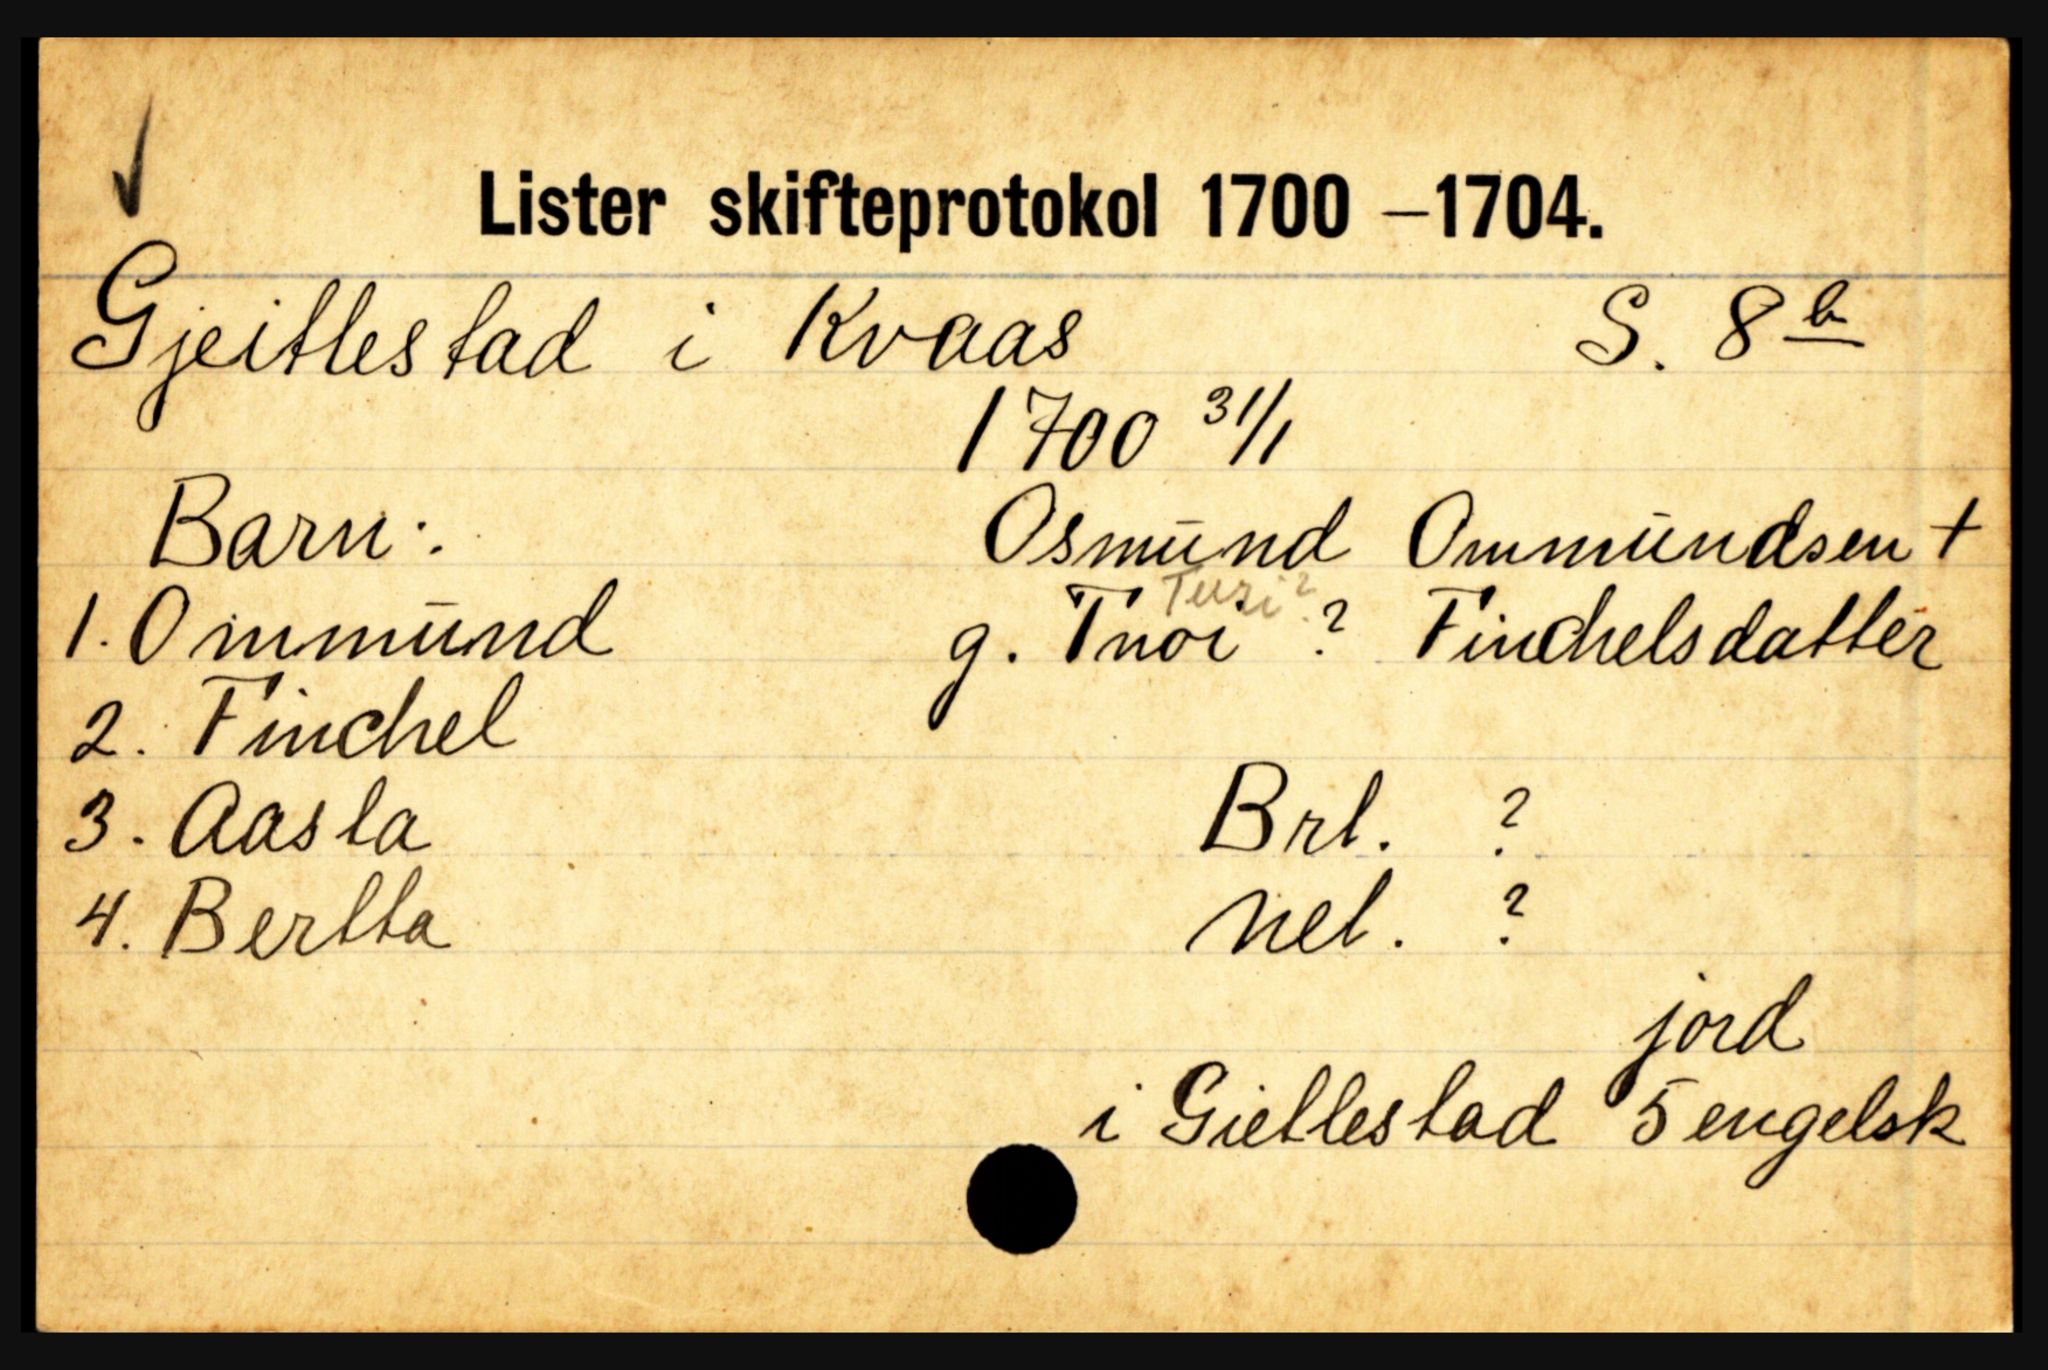 Lister skifteprotokol 1700 –1704.
Gjeitlestad i Kvaas S. 8 b
1700 31/1
Barn: Osmund Ommundsen +
Tusi?
1. Ommund g. Tnoi ? Finchelsdatter
2. Finchel
3. Aasla Brl. ?
4. Bertta Nel. ?
jord
i Gietlestad 5 engelsk